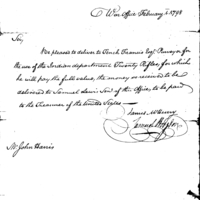 War Office February 5 1798
Sir,
Be pleased to deliver to Tench Francis Esqr Purveyor for
the use of the Indian department Twenty Rifles, for which
he will pay the full value, the money so received to be
delivered to Samuel Lewis Senr of this Office, to be paid
to the Treasurer of the United States
James McHenry
Samuel Hodgdon
Mr John Harris